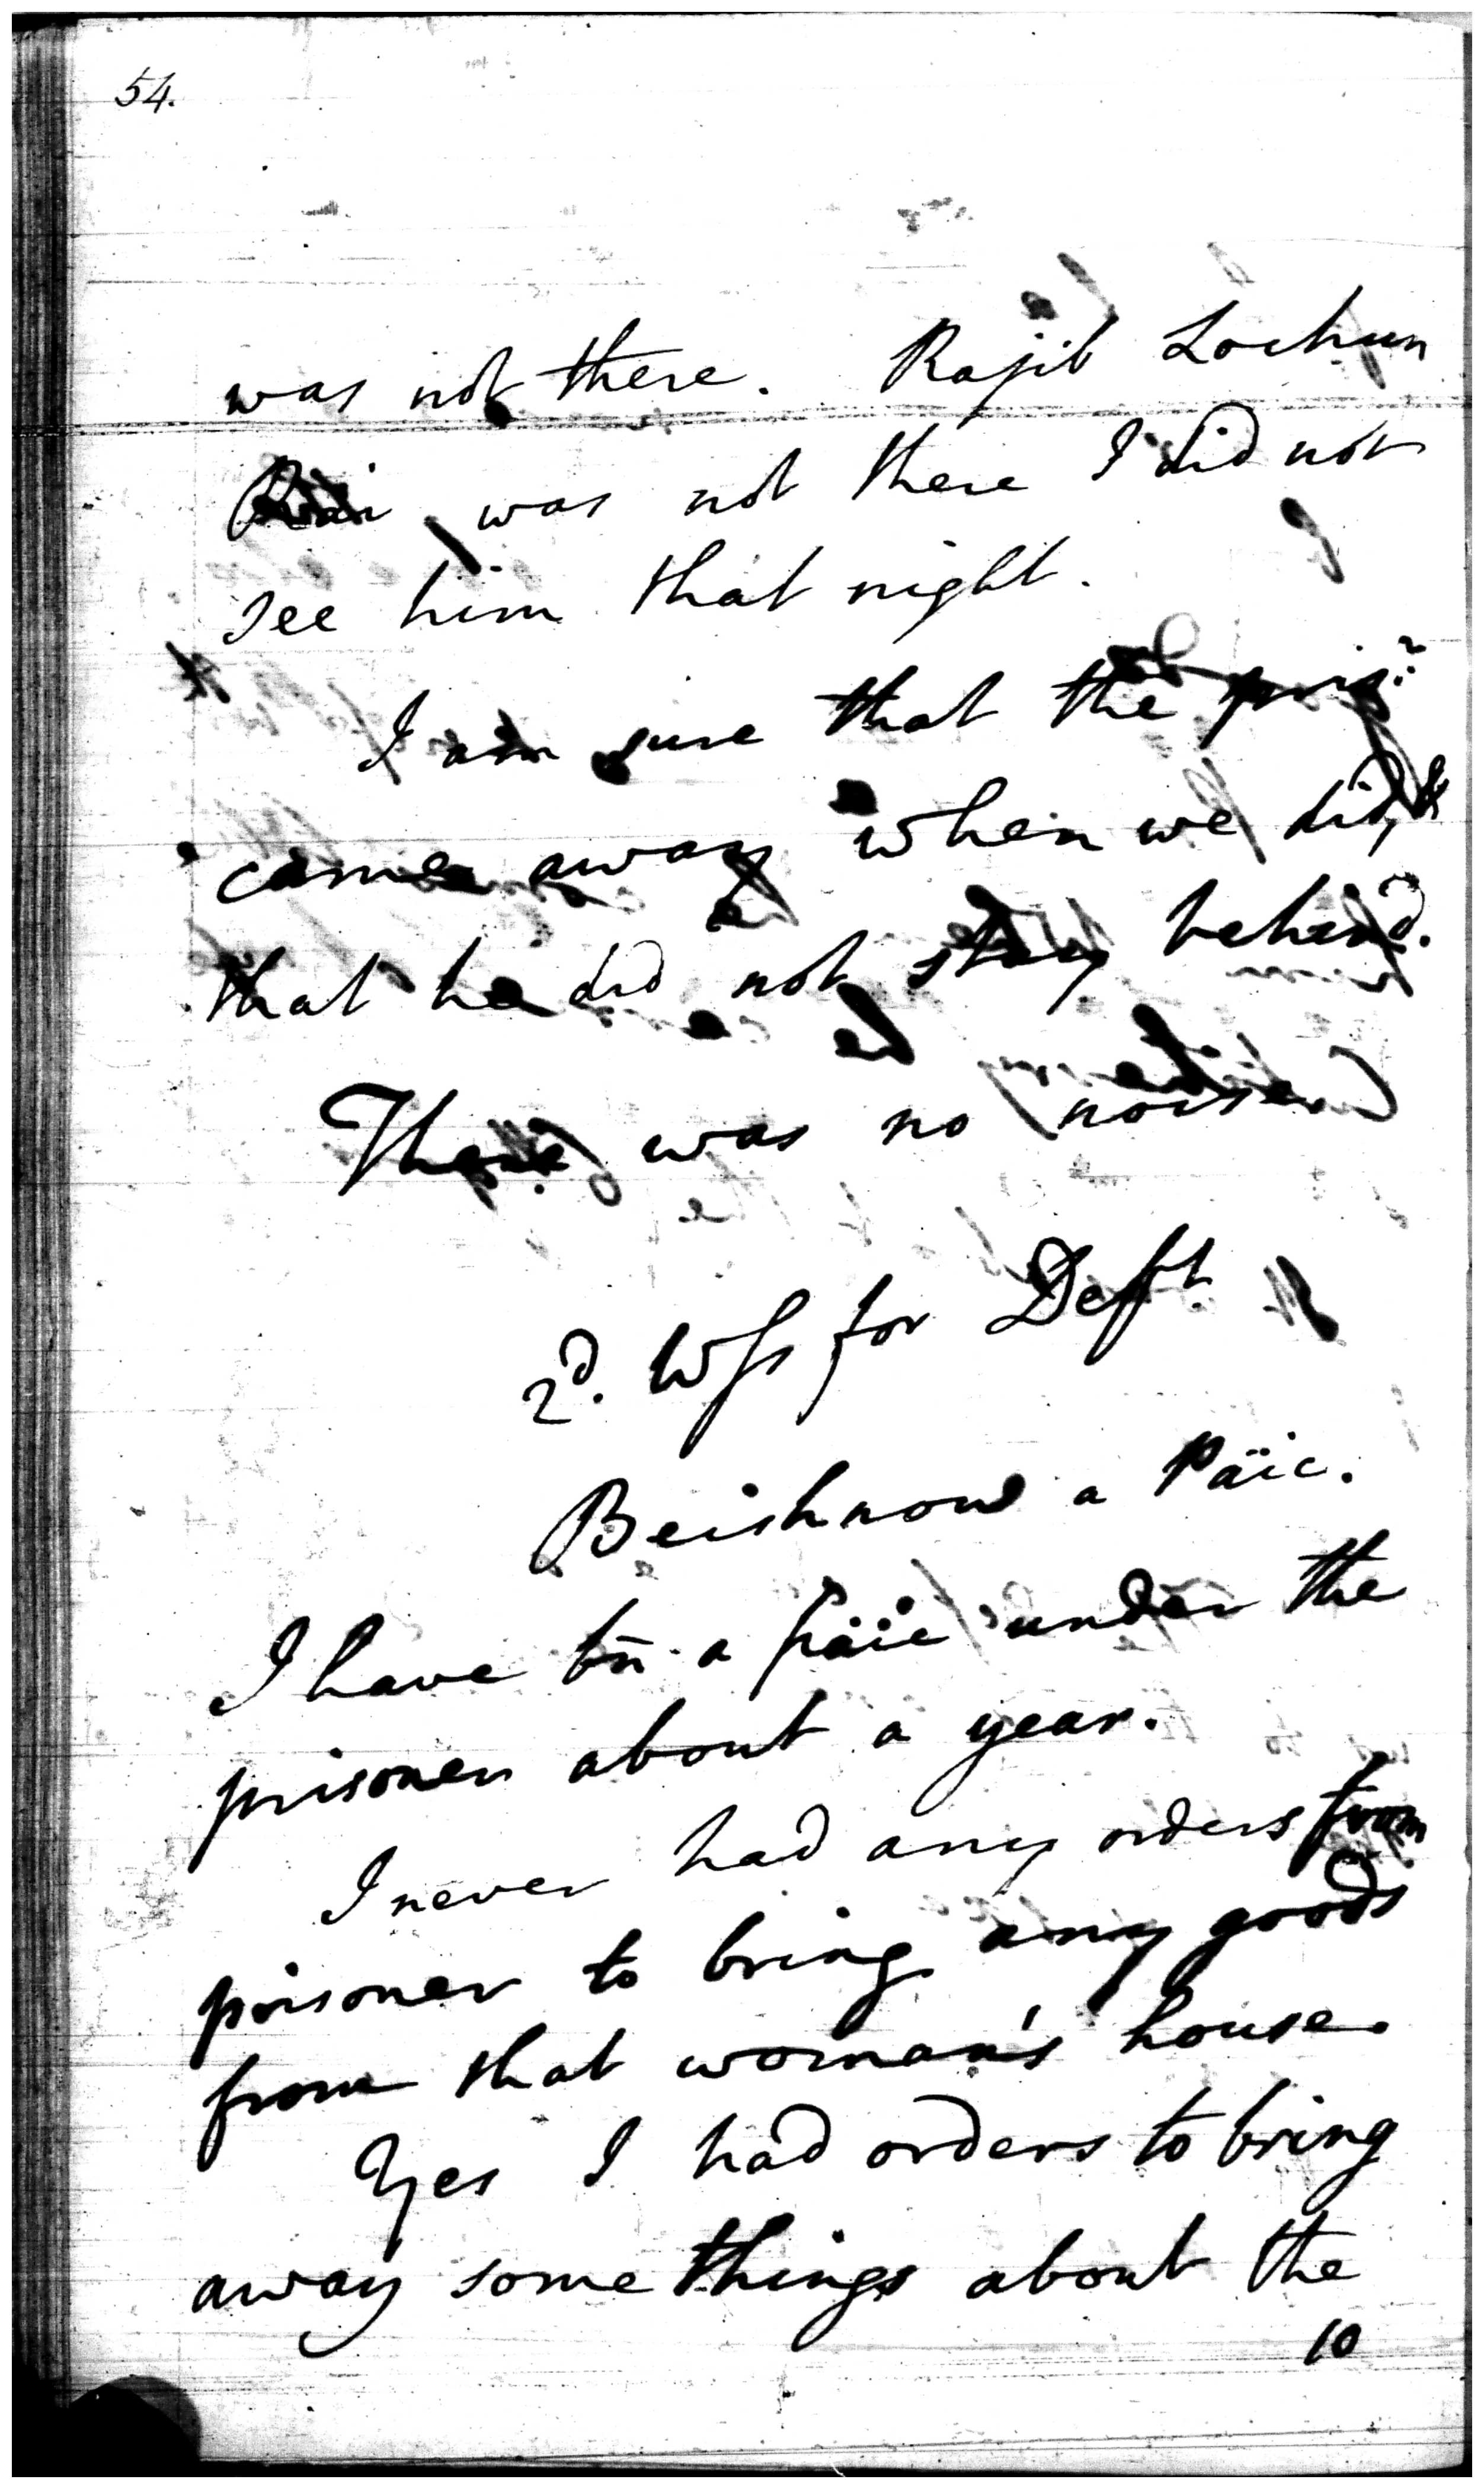 54.
was not there. Rajib Lochun
Rai was not there I did not
see him that night.
I am sure that the pris.r
came away when we did, &
that he did not stay behind.
There was no noise
2d. Wss for Deft
Beishnow a Päic.
I have bn. a päic under the
prisoner about a year.
I never had any orders from
prisoner to bring any goods
from that woman's house.
Yes I had orders to bring
away some things about the
10